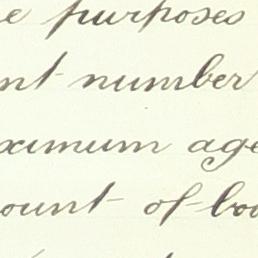 e purposes
nt number
ximum age
ount of boo